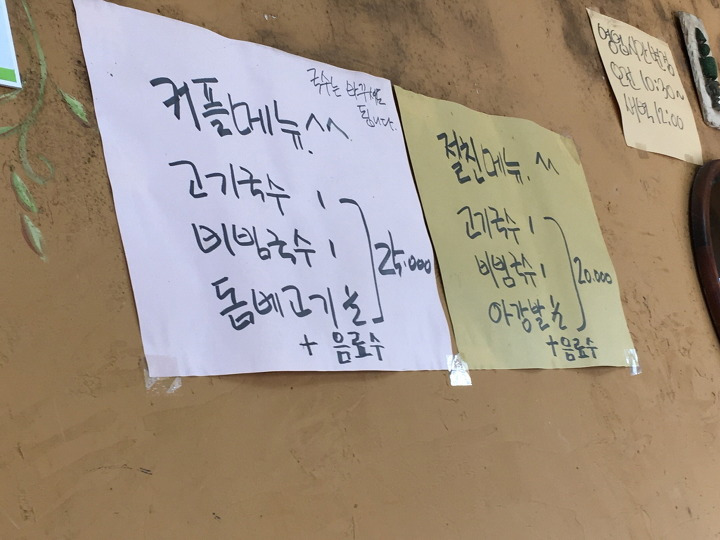 커플메뉴.^^
국수는 바꾸셔도
됩니다.
고기국수 1
비빔국수 1
돔베고기 ½
25.000
+ 음료수
절친메뉴. ^^
고기국수 1
비빔국수 1
아강발 ½
20.000
+ 음료수
영업시간변경
오전 10:30~
새벽 12:00